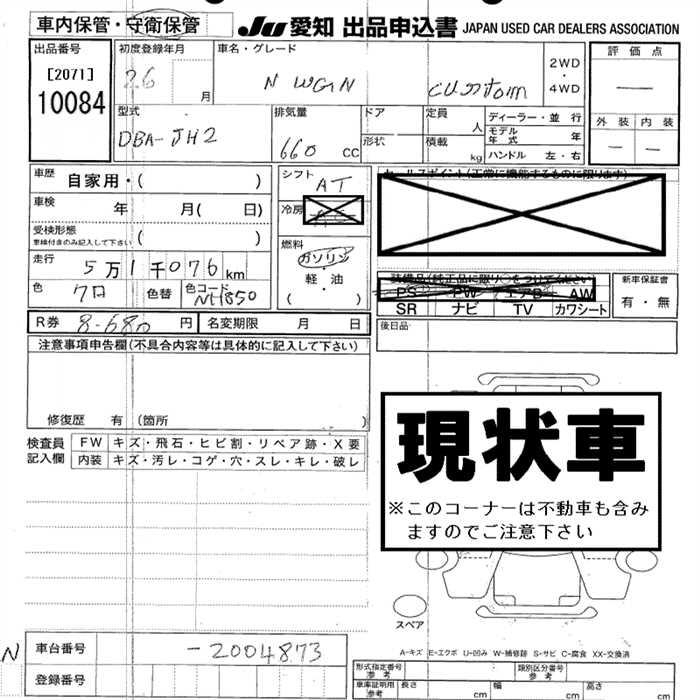 車内保管・守衛保管
JU 愛知 出品申込書 JAPAN USED CAR DEALERS ASSOCIATION
出品番号
[2071]
10084
初度登録年月
26
月
車名・グレード
N WGN custom
2WD
・
4WD
評価点
外装 内装
型式
DBA-JH2
排気量
660 cc
ドア
形状
定員
人
積載
kg
ディーラー・並行
モデル年式 年
ハンドル 左・右
車歴 自家用・( )
車検 年 月( 日)
受検形態
車検付きのみ記入して下さい ( )
走行 5万1千076km
色 7口 色替 色コード NH850
シフト
AT
冷房
燃料
ガソリン
・
軽・油
( )
セールスポイント(正常に機能するものに限ります)
装備品(純正品に限り○をつけてください)
PS PW エアB AW
SR ナビ TV カワシート
新車保証書
有・無
R券 8-680 円 名変期限 月 日
後日品
注意事項申告欄(不具合内容等は具体的に記入して下さい)
修復歴 有 (箇所 )
検査員
記入欄
FW キズ・飛石・ヒビ割・リペア跡・X要
内装 キズ・汚レ・コゲ・穴・スレ・キレ・破レ
現状車
※このコーナーは不動車も含み
ますのでご注意下さい
スペア
A-キズ E-エクボ U-凹み W-補修跡 S-サビ C-腐食 XX-交換済
N 車台番号 -2004873
登録番号
形式指定番号
参考
類別区分番号
参考
車庫証明用
参考
長さ cm 幅 cm 高さ cm